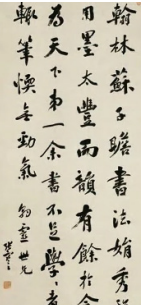 翰林蘇子瞻書法娟秀雖
用墨太豐而韻有餘於今
為天下第一余書不足學學者
輒筆愞無勁氣 翰臺世兄